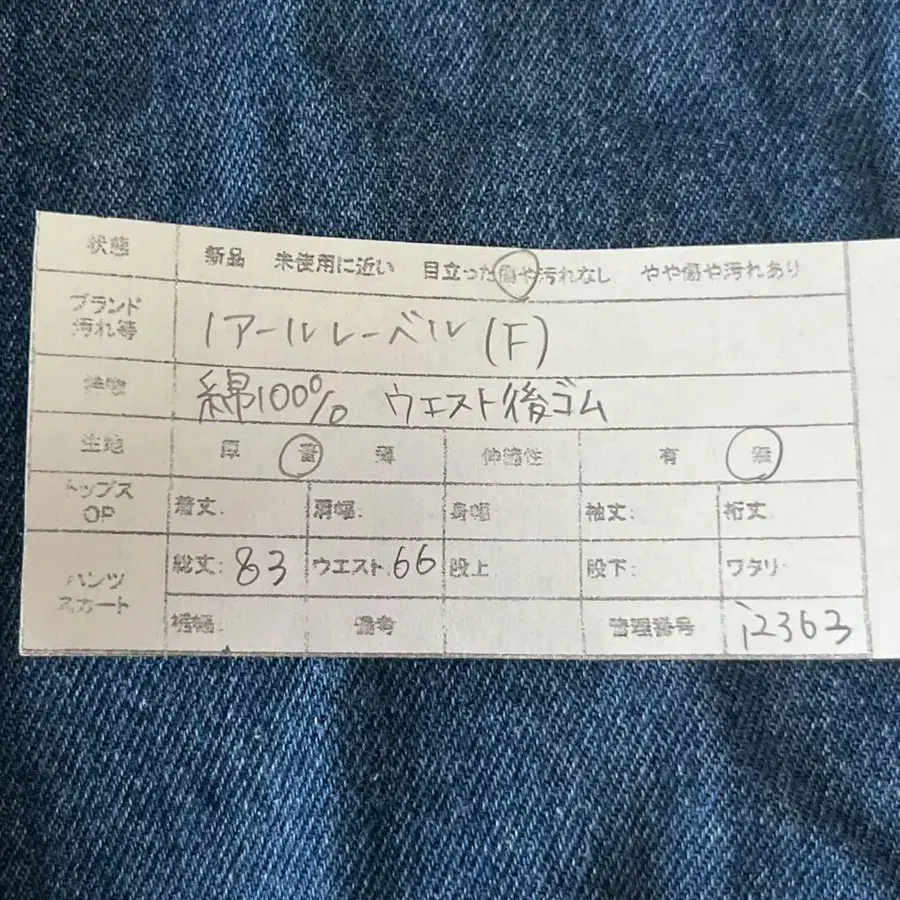 状態 新品 未使用に近い 目立った傷や汚れなし やや傷や汚れあり
ブランド
汚れ等 アールレーベル (F)
特徴 綿100% ウエスト後ゴム
生地 厚 普 薄 伸縮性 有 無
トップス
OP 着丈: 肩幅: 身幅 袖丈: 裄丈
パンツ
スカート 総丈: 83 ウエスト: 66 股上 股下: ワタリ
裾幅 備考 管理番号 i2363